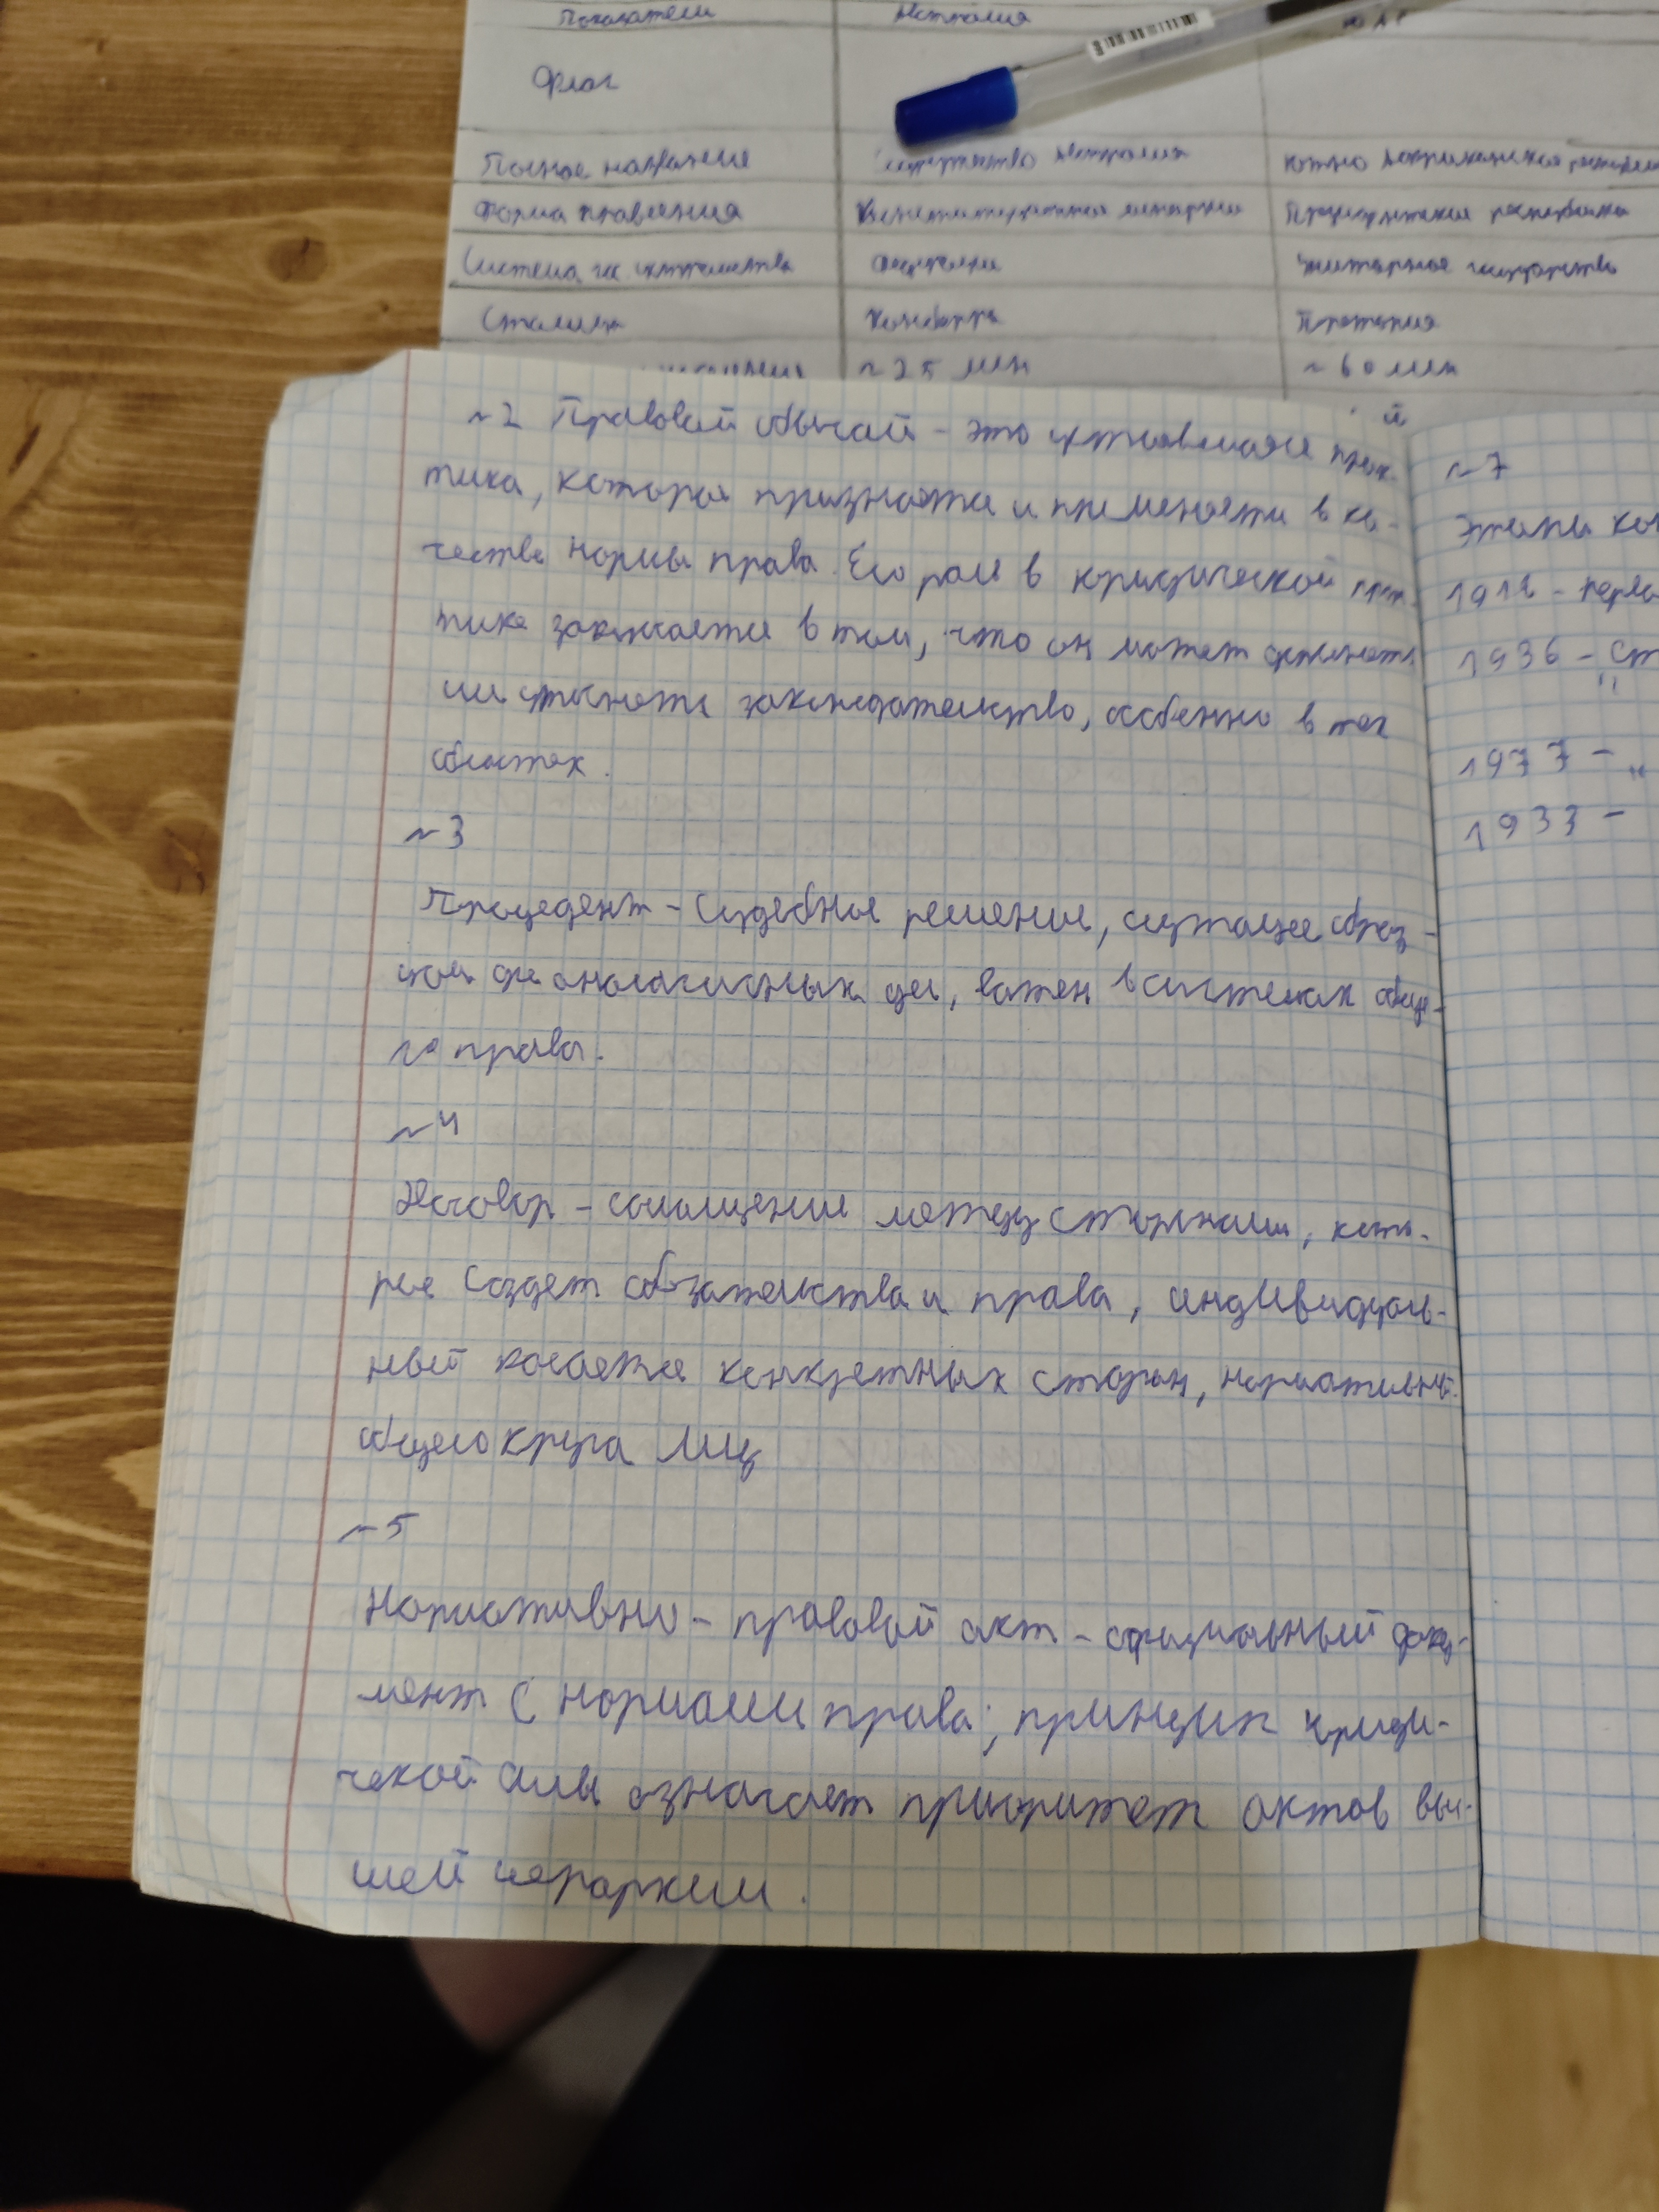 Показатели Австралия ЮАР
Флаг
Полное название государство Австралия Южно Африканская
Форма правления Конституционная монархия Президентская республика
Система гос устройства федерация Унитарное государство
Столица Канберра Претория
~25 млн ~60 млн
~2 Правовой обычай - это устоявшаяся прак-
тика, которая признается и применяется в ка-
честве нормы права. Его роль в юридической прак-
тике заключается в том, что он может дополнять
или уточнять законодательство, особенно в тех
областях.
~3
Прецедент - судебное решение, служащее образ-
цом для аналогичных дел, важен в системах обще-
го права.
~4
Договор - соглашение между сторонами, кото-
рое создет обзательства и права, индивидуаль-
ный касается конкретных сторон, нормативный
общего круга лиц
~5
Нормативно - правовой акт - официальный доку-
мент с нормами права; принцип юриди-
чекой силы означает приоритет актов выс-
шей иерархии.
~7
Этапы
1918 -
1936 -
1977 -
1933 -